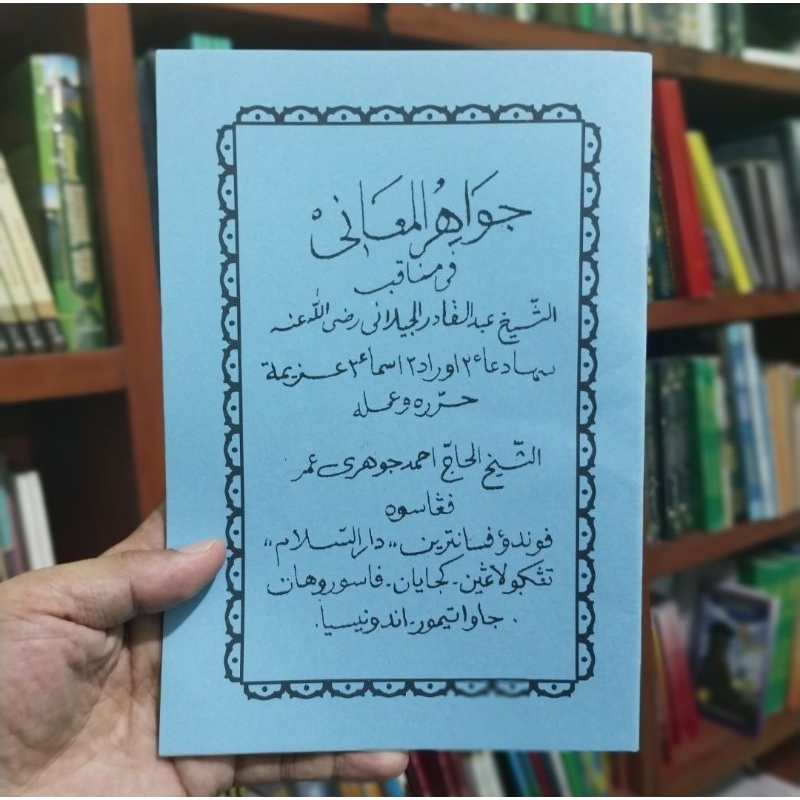 جواهر المعانى
فى مناقب
الشّيخ عبد القادر الجيلانى رضى اللّٰه عنه
بهادعاء٢ اوراد٢ اسماء٣ عزيمة
حرّره وعمله
الشّيخ الحاجّ احمد جوهرى عمر
فڠاسوه
فوندوء فسانترين ,,دار السّلام,,
تڠكولاڠين - كجايان - فاسوروهان
. جاوا تيمور - اندونيسيا .